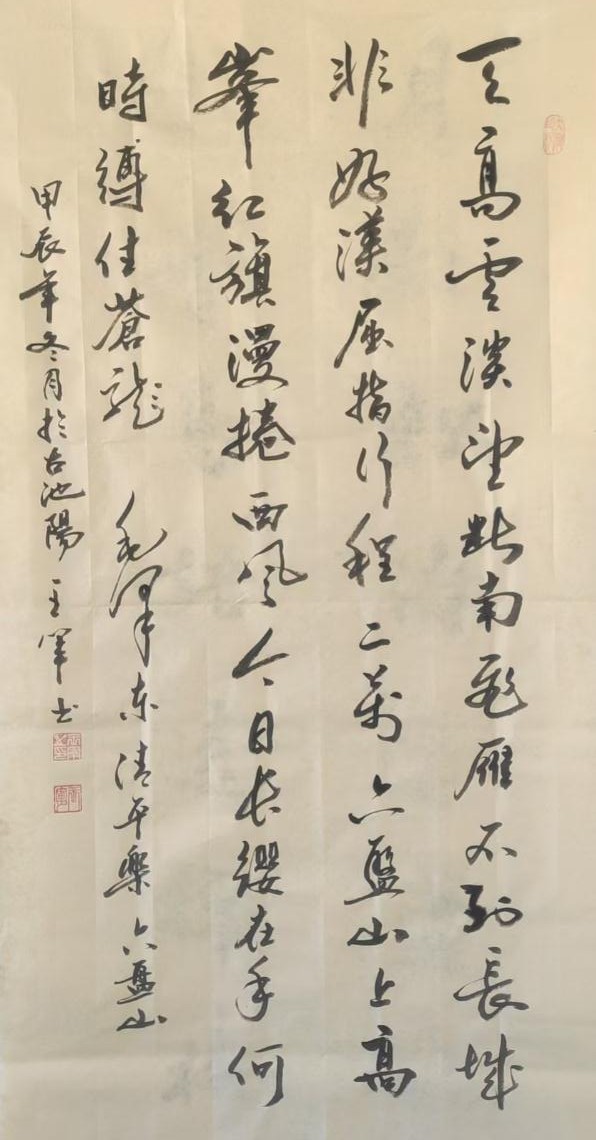 天高雲淡望斷南飛雁不到長城
非好漢屈指行程二萬六盤山上高
峯紅旗漫捲西風今日長纓在手何
時縛住蒼龍 毛澤東清平樂六盤山
甲辰年冬月於古池陽王軍書